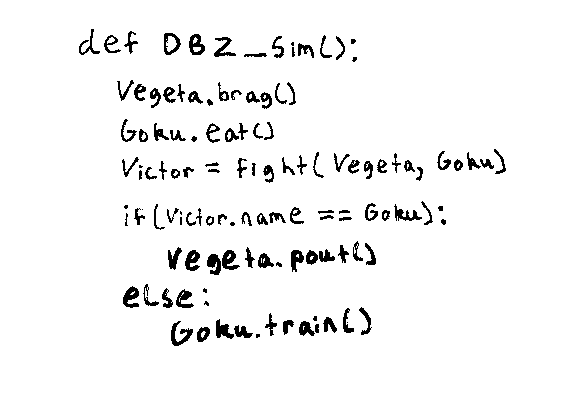 def DBZ_Sim():
Vegeta.brag()
Goku.eat()
Victor = fight(Vegeta, Goku)
if(Victor.name == Goku):
Vegeta.pout()
else:
Goku.train()